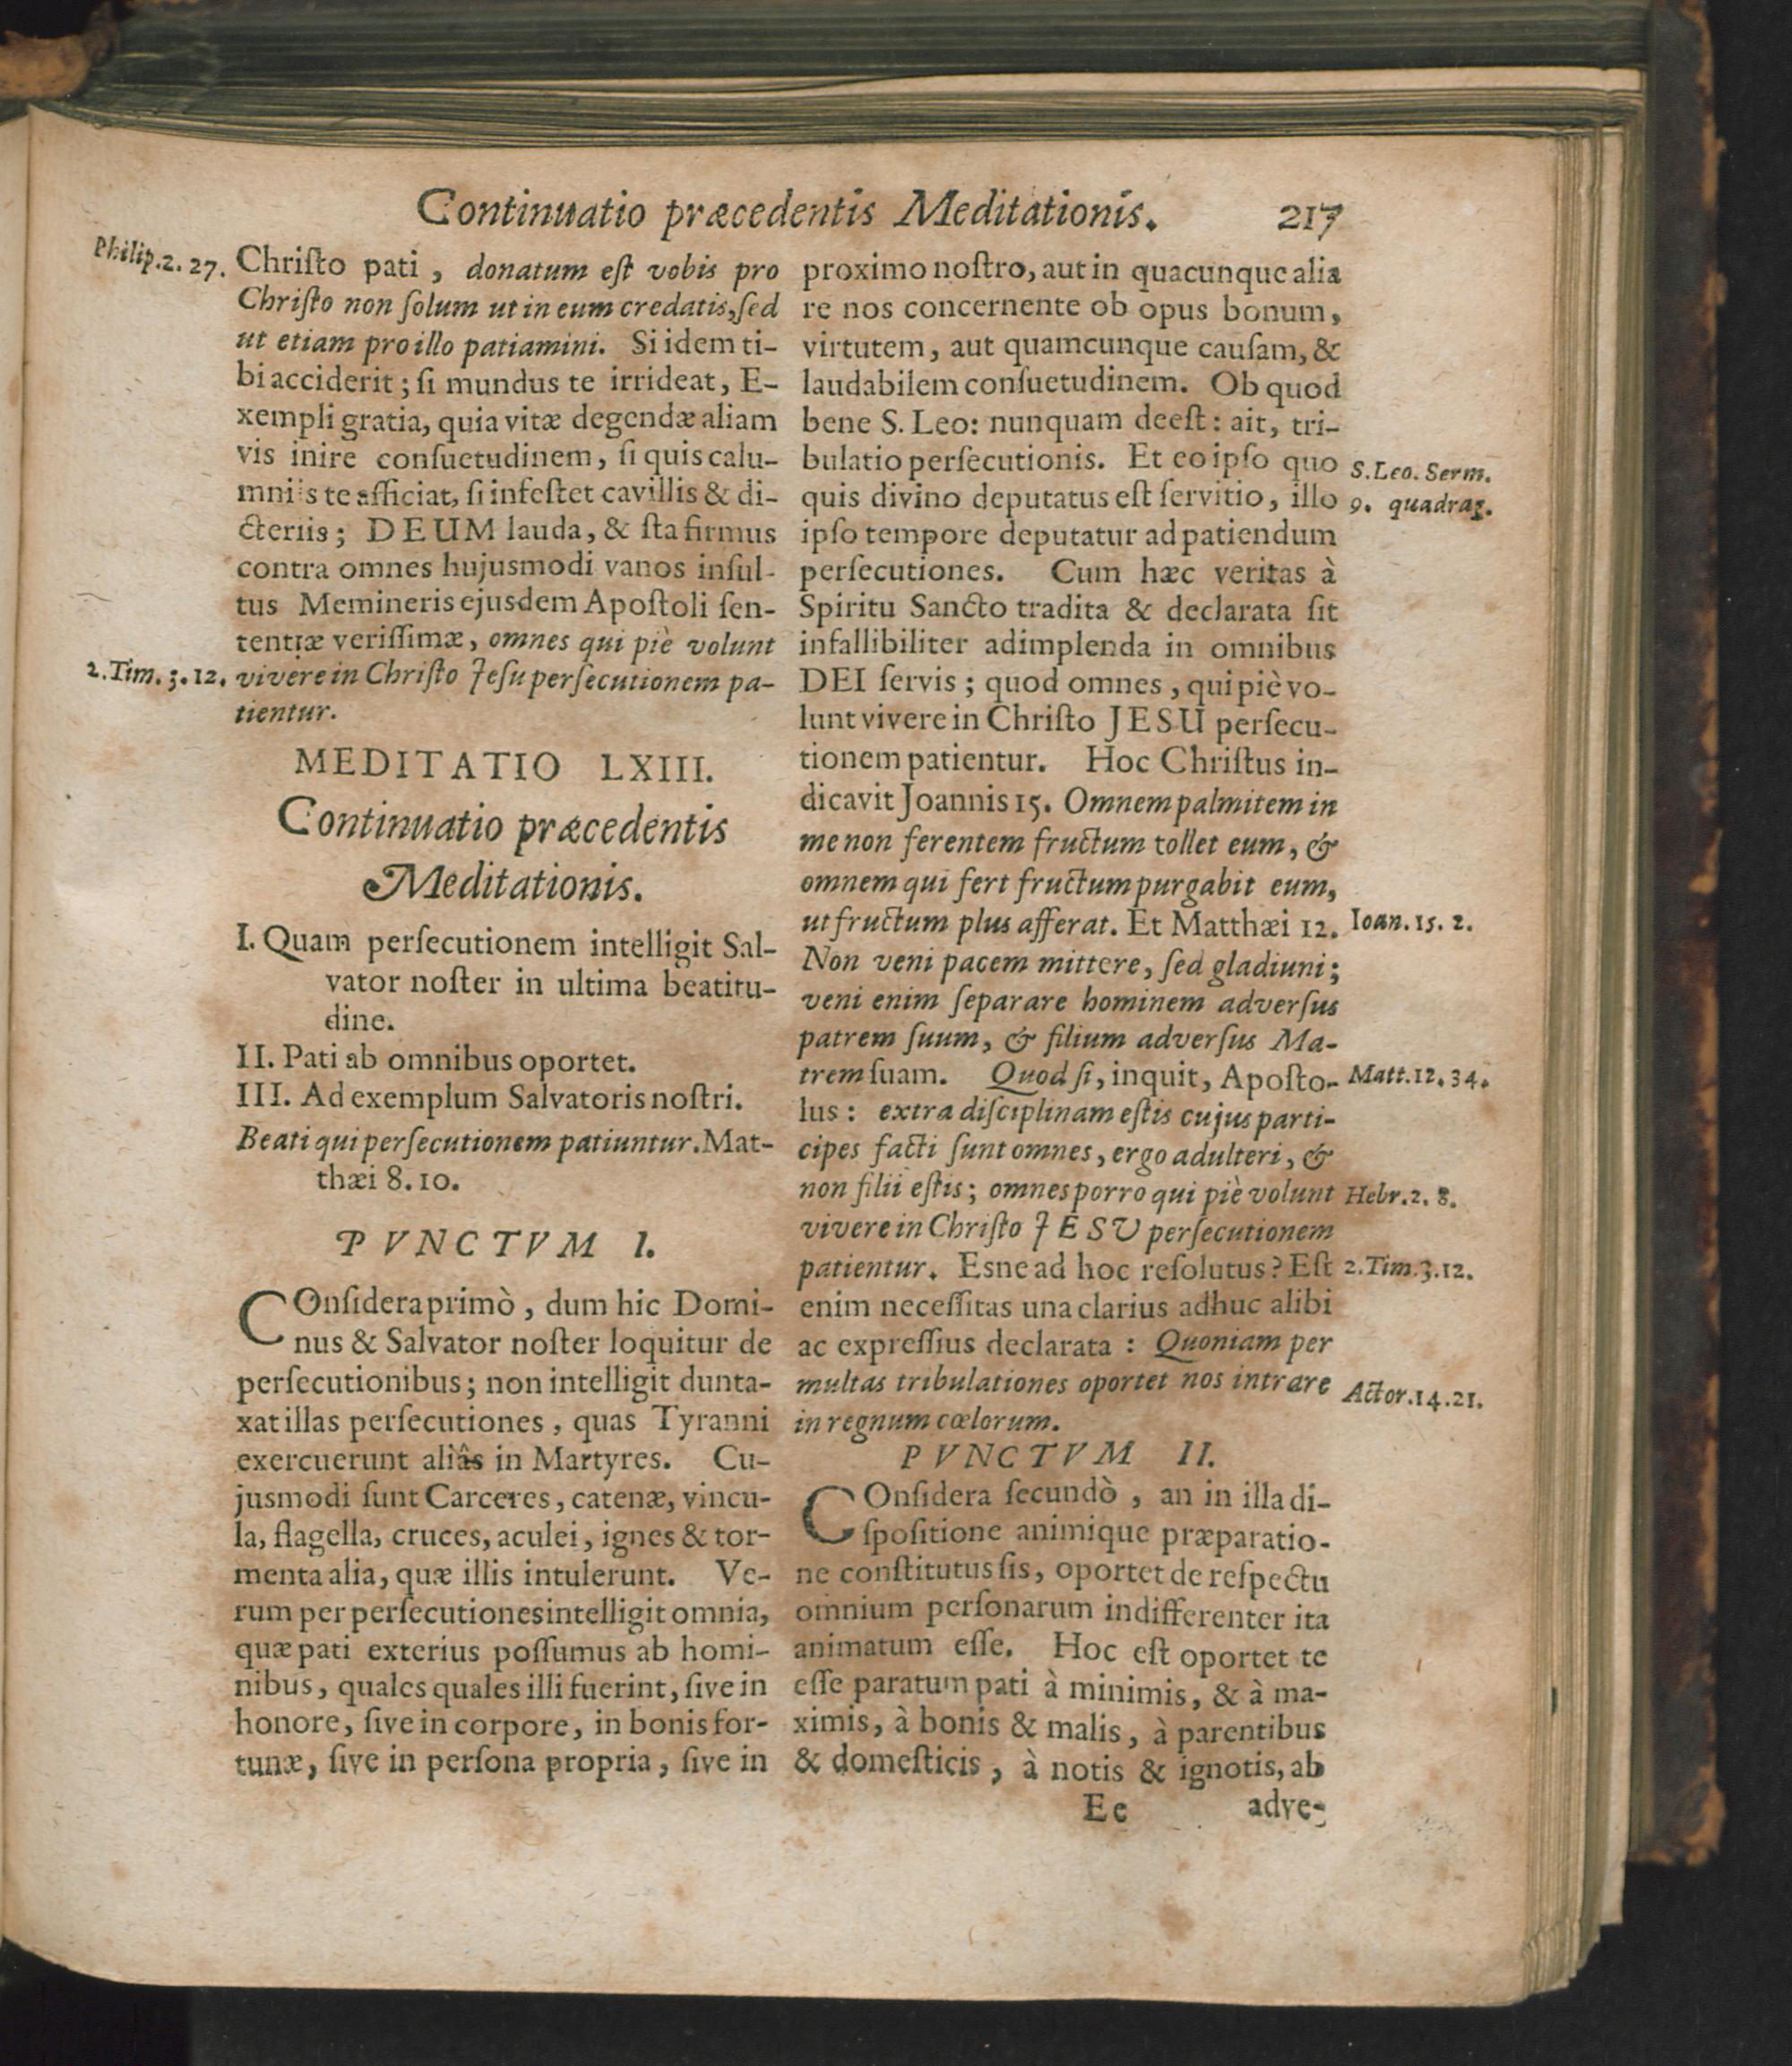 Continuatio præcedentis Meditationis. 217
Philip.2. 27.
Chriſto pati, donatum eſt vobis pro
Chriſto non ſolum ut in eum credatis, ſed
ut etiam pro illo patiamini. Si idem ti-
bi acciderit; ſi mundus te irrideat, E-
xempli gratia, quia vitæ degendæ aliam
vis inire conſuetudinem, ſi quis calu-
mniis te afficiat, ſi infeſtet cavillis & di-
cteriis; DEUM lauda, & ſta firmus
contra omnes hujusmodi vanos inſul-
tus Memineris ejusdem Apoſtoli ſen-
tentiæ veriſſimæ, omnes qui piè volunt
2.Tim. 3. 12.
vivere in Chriſto Jeſu perſecutionem pa-
tientur.
MEDITATIO LXIII.
Continuatio præcedentis
Meditationis.
I. Quam perſecutionem intelligit Sal-
vator noſter in ultima beatitu-
dine.
II. Pati ab omnibus oportet.
III. Ad exemplum Salvatoris noſtri.
Beati qui perſecutionem patiuntur. Mat-
thæi 8. 10.
PVNCTVM I.
COnſidera primò, dum hic Domi-
nus & Salvator noſter loquitur de
perſecutionibus; non intelligit dunta-
xat illas perſecutiones, quas Tyranni
exercuerunt aliâs in Martyres. Cu-
jusmodi ſunt Carceres, catenæ, vincu-
la, flagella, cruces, aculei, ignes & tor-
menta alia, quæ illis intulerunt. Ve-
rum per perſecutiones intelligit omnia,
quæ pati exterius poſſumus ab homi-
nibus, quales quales illi fuerint, ſive in
honore, ſive in corpore, in bonis for-
tunæ, ſive in perſona propria, ſive in
proximo noſtro, aut in quacunque alia
re nos concernente ob opus bonum,
virtutem, aut quamcunque cauſam, &
laudabilem conſuetudinem. Ob quod
bene S. Leo: nunquam deeſt: ait, tri-
bulatio perſecutionis. Et eo ipſo quo
S. Leo. Serm.
quis divino deputatus eſt ſervitio, illo
9. quadrag.
ipſo tempore deputatur ad patiendum
perſecutiones. Cum hæc veritas à
Spiritu Sancto tradita & declarata ſit
infallibiliter adimplenda in omnibus
DEI ſervis; quod omnes, qui piè vo-
lunt vivere in Chriſto JESU perſecu-
tionem patientur. Hoc Chriſtus in-
dicavit Joannis 15. Omnem palmitem in
me non ferentem fructum tollet eum, &
omnem qui fert fructum purgabit eum,
ut fructum plus afferat. Et Matthæi 12.
Ioan. 15. 2.
Non veni pacem mittere, ſed gladiuni;
veni enim ſeparare hominem adverſus
patrem ſuum, & filium adverſus Ma-
trem ſuam. Quod ſi, inquit, Apoſto-
Matt.12. 34.
lus: extra diſciplinam eſtis cujus parti-
cipes facti ſunt omnes, ergo adulteri, &
non filii eſtis; omnes porro qui piè volunt
Hebr.2. 8.
vivere in Chriſto JESU perſecutionem
patientur. Esne ad hoc reſolutus? Eſt
2.Tim.3.12.
enim neceſſitas una clarius adhuc alibi
ac expreſſius declarata: Quoniam per
multas tribulationes oportet nos intrare
Actor.14.21.
in regnum cœlorum.
PVNCTVM II.
COnſidera ſecundò, an in illa di-
ſpoſitione animique præparatio-
ne conſtitutus ſis, oportet de reſpectu
omnium perſonarum indifferenter ita
animatum eſſe. Hoc eſt oportet te
eſſe paratum pati à minimis, & à ma-
ximis, à bonis & malis, à parentibus
& domeſticis, à notis & ignotis, ab
Ee adve-